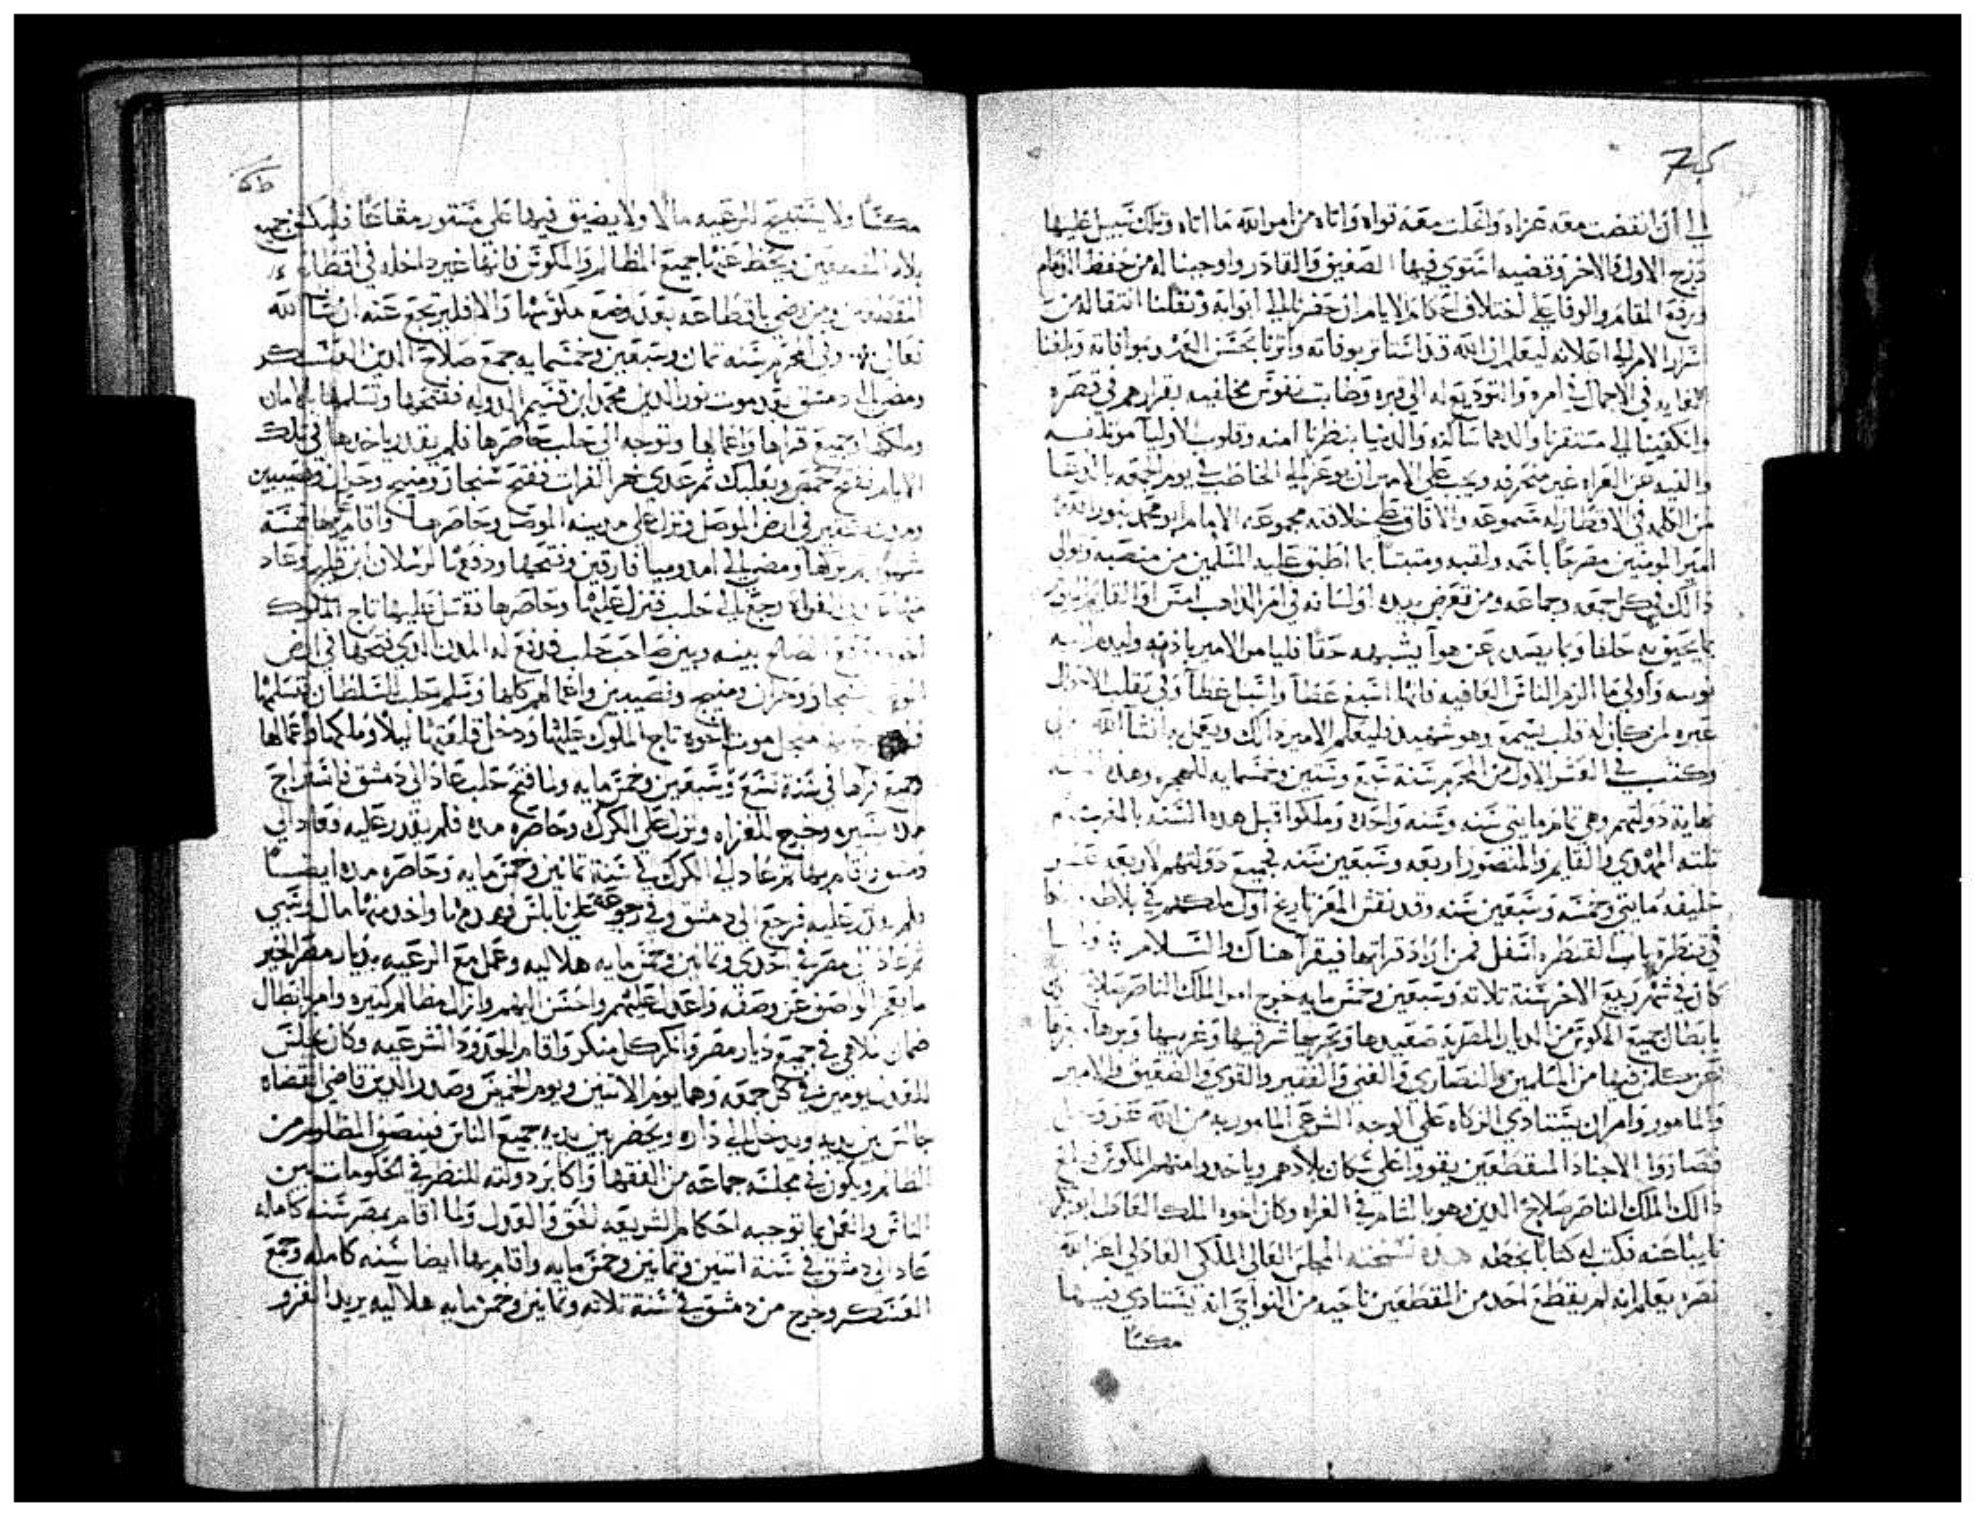 الي ان انقضت معه عزاه وانحلت معه قواه واتاه من امر الله ما اتاه وتلك سبيل عليها
درج الاول والاخر وقضيه استوي فيها الضعيف والقادر واوجبنا له من حفظ الذمام
ورفع المقام والوفا علي اختلاف احكام الايام ان حفزنا الي ابوابه ونقلنا انتقاله من
اسرار الامر الي اعلانه ليعلم ان الله قد استاثر بوفاته واثرنا بحسن العهد وموافاته وبلغنا
الغايه في الاجمال في امره والتوديع له الي قبره وطابت نفوس مخالفيه بقرارهم في قصره
وانكفينا الي مستقرنا والدهما ساكنه والدنيا بنظرنا امنه وقلوب الاوليا موتلفه
والنيه عن الغزاه غير منحرفه ويجب علي الامير ان يوعز الي الخاطب في يوم الجمعه بالدعا
من الكلمه في الاقطار له مسموعه والافاق علي خلافته مجموعه الامام ابو محمد بنور الله
امير المومنين مصرحا باسمه ولقبه ومتبتا بما اطبق عليه المسلمين من منصبه وتوالي
ذالك في كل جمعه وجماعه ومن تعرض بيده او لسانه في امر الذاهب امس او القايم
بما يحيق به حلفا وبما يصد عن هوا يشبهه حقا فليامر الامير باذنه وليدم
نوسه واولي ما الزم الناس العافيه فانها اسبغ غطا واسبل غطا وفي تقلب الاحوال
عبره لمن كان له قلب يسمع وهو شهيد فليعلم الامير ذالك ويعمل به انشا الله
وكتب في العشر الاول من المحرم سنة سبع وستين وخمسمايه للهجره وهذه السنه
نهاية دولتهم وهي تمام مايتي سنه وسنه واحده وملكوا قبل هذه السنه بالمغرب
تلته المهدي والقايم والمنصور اربعه وسبعين سنه فجميع دولتهم لاربعه عشر
خليفه مايتي وخمسه وسبعين سنه وقد نقش المعز تاريخ اول ملكهم في بلاطه
في قنطرة باب القنطره اسفل فمن اراد قراتها فيقرا هناك والسلام ولما
كان في شهر ربيع الاخر سنة ثلاته وسبعين وخمس مايه خرج امر الملك الناصر صلاح الدين
بابطال جميع المكوس من الديار المصريه صعيدها وبحريها شرقيها وغربيها وبرها وبحرها
عن كل من فيها من المسلمين والنصاري والغني والفقير والقوي والضعيف والامير
والمامور وامر ان يستادي الزكاه علي الوجه الشرعي المامور به من الله عز وجل
فصاروا الاجناد المنقطعين يقووا علي سكان بلادهم وياخدوا منهم المكوس فبلغ
ذالك الملك الناصر صلاح الدين وهو بالشام في الغزاه وكان اخوه الملك العادل ابو بكر
نايبا عنه فكتب له كتابا بخطه هذه نسخته المجلس العالي الملكي العادلي اعز الله
نصره يعلم انه لم يقطع احد من المقطعين ناحيه من النواحي انه يستادي فيها
مكسا
مكسا ولا يستبيح للرعيه مالا ولا يضيق فيها علي مستور معاشا فليكشف جميع
بلاد المقطعين ويحط عنها جميع المظالم والمكوس فانها غير داخله في اقطاع
المقطعين ومن رضي باقطاعه بعد وضع مكوسها والا فليرجع عنه ان شا الله
تعالي وفي المحرم سنه تمان وسبعين وخمسمايه جمع صلاح الدين العسكر
ومضي الي دمشق بعد موت نور الدين محمد ابن قسيم الدوله ففتحها وتسلمها بالامان
وملكها وجميع قراها واعمالها وتوجه الي حلب حاصرها فلم يقدر ياخدها في تلك
الايام ففتح حمص وبعلبك ثم عدي نهر الفرات ففتح سنجار ومنبج وحران ونصيبين
ومدينه في ارض الموصل ونزل علي مدينه الموصل وحاصرها واقام عليها خمسه
شهور ثم تركها ومضي الي امد وميافارقين وفتحها ودفعها لرسلان ابن قلج وعاد
منها الي الفراه رجع الي حلب فنزل عليها وحاصرها فقتل عليها تاج الملوك
اخوه ووقع الصلح بينه وبين صاحب حلب فدفع له المدن الذي فتحها في ارض
الموصل سنجار وحران ومنبج ونصيبين واعمالهم كلها وسلم حلب للسلطان فتسلمها
منجل موت اخوه تاج الملوك عليها ودخل قلعتها ليلا وملكها واعمالها
وجميع قراها في سنة تسع وسبعين وخمس مايه ولما فتح حلب عاد الي دمشق فاستراح
مده يسيره وخرج للغزاه ونزل علي الكرك وحاصره مده فلم يقدر عليه وعاد الي
دمشق واقام بها ثم عاد الي الكرك في سنة تمانين وخمس مايه وحاصره مده ايضا
فلم يقدر عليه فرجع الي دمشق وفي رجوعه علي نابلس فهدمها واخد منها مال وسبي
ثم عاد الي مصر في احدي وتمانين وخمس مايه هلاليه وعمل مع الرعيه بديار مصر الخير
ما يعجز الوصف عن وصفه واعدل عليهم واحسن اليهم وازال مظالم كتيره وامر بابطال
ضمان الملاهي في جميع ديار مصر وانكر كل منكر واقام الحدود الشرعيه وكان يجلس
للعدل يومين في كل جمعه وهما يوم الاتنين ويوم الخميس وصدر الدين قاضي القضاه
جالس بين يديه ويدخل الي داره ويحضر بين يديه جميع الناس فينصف المظلوم من
الظالم ويكون في مجلسه جماعه من الفقها واكابر دولته للنظر في الحكومات بين
الناس والعمل بما توجبه احكام الشريعه الحق والعدل ولما اقام بمصر سنه كامله
عاد الي دمشق في سنة اتنين وتمانين وخمس مايه واقام بها ايضا سنه كامله وجمع
العسكر وخرج من دمشق في سنة تلاته وتمانين وخمس مايه هلاليه يريد الغزو